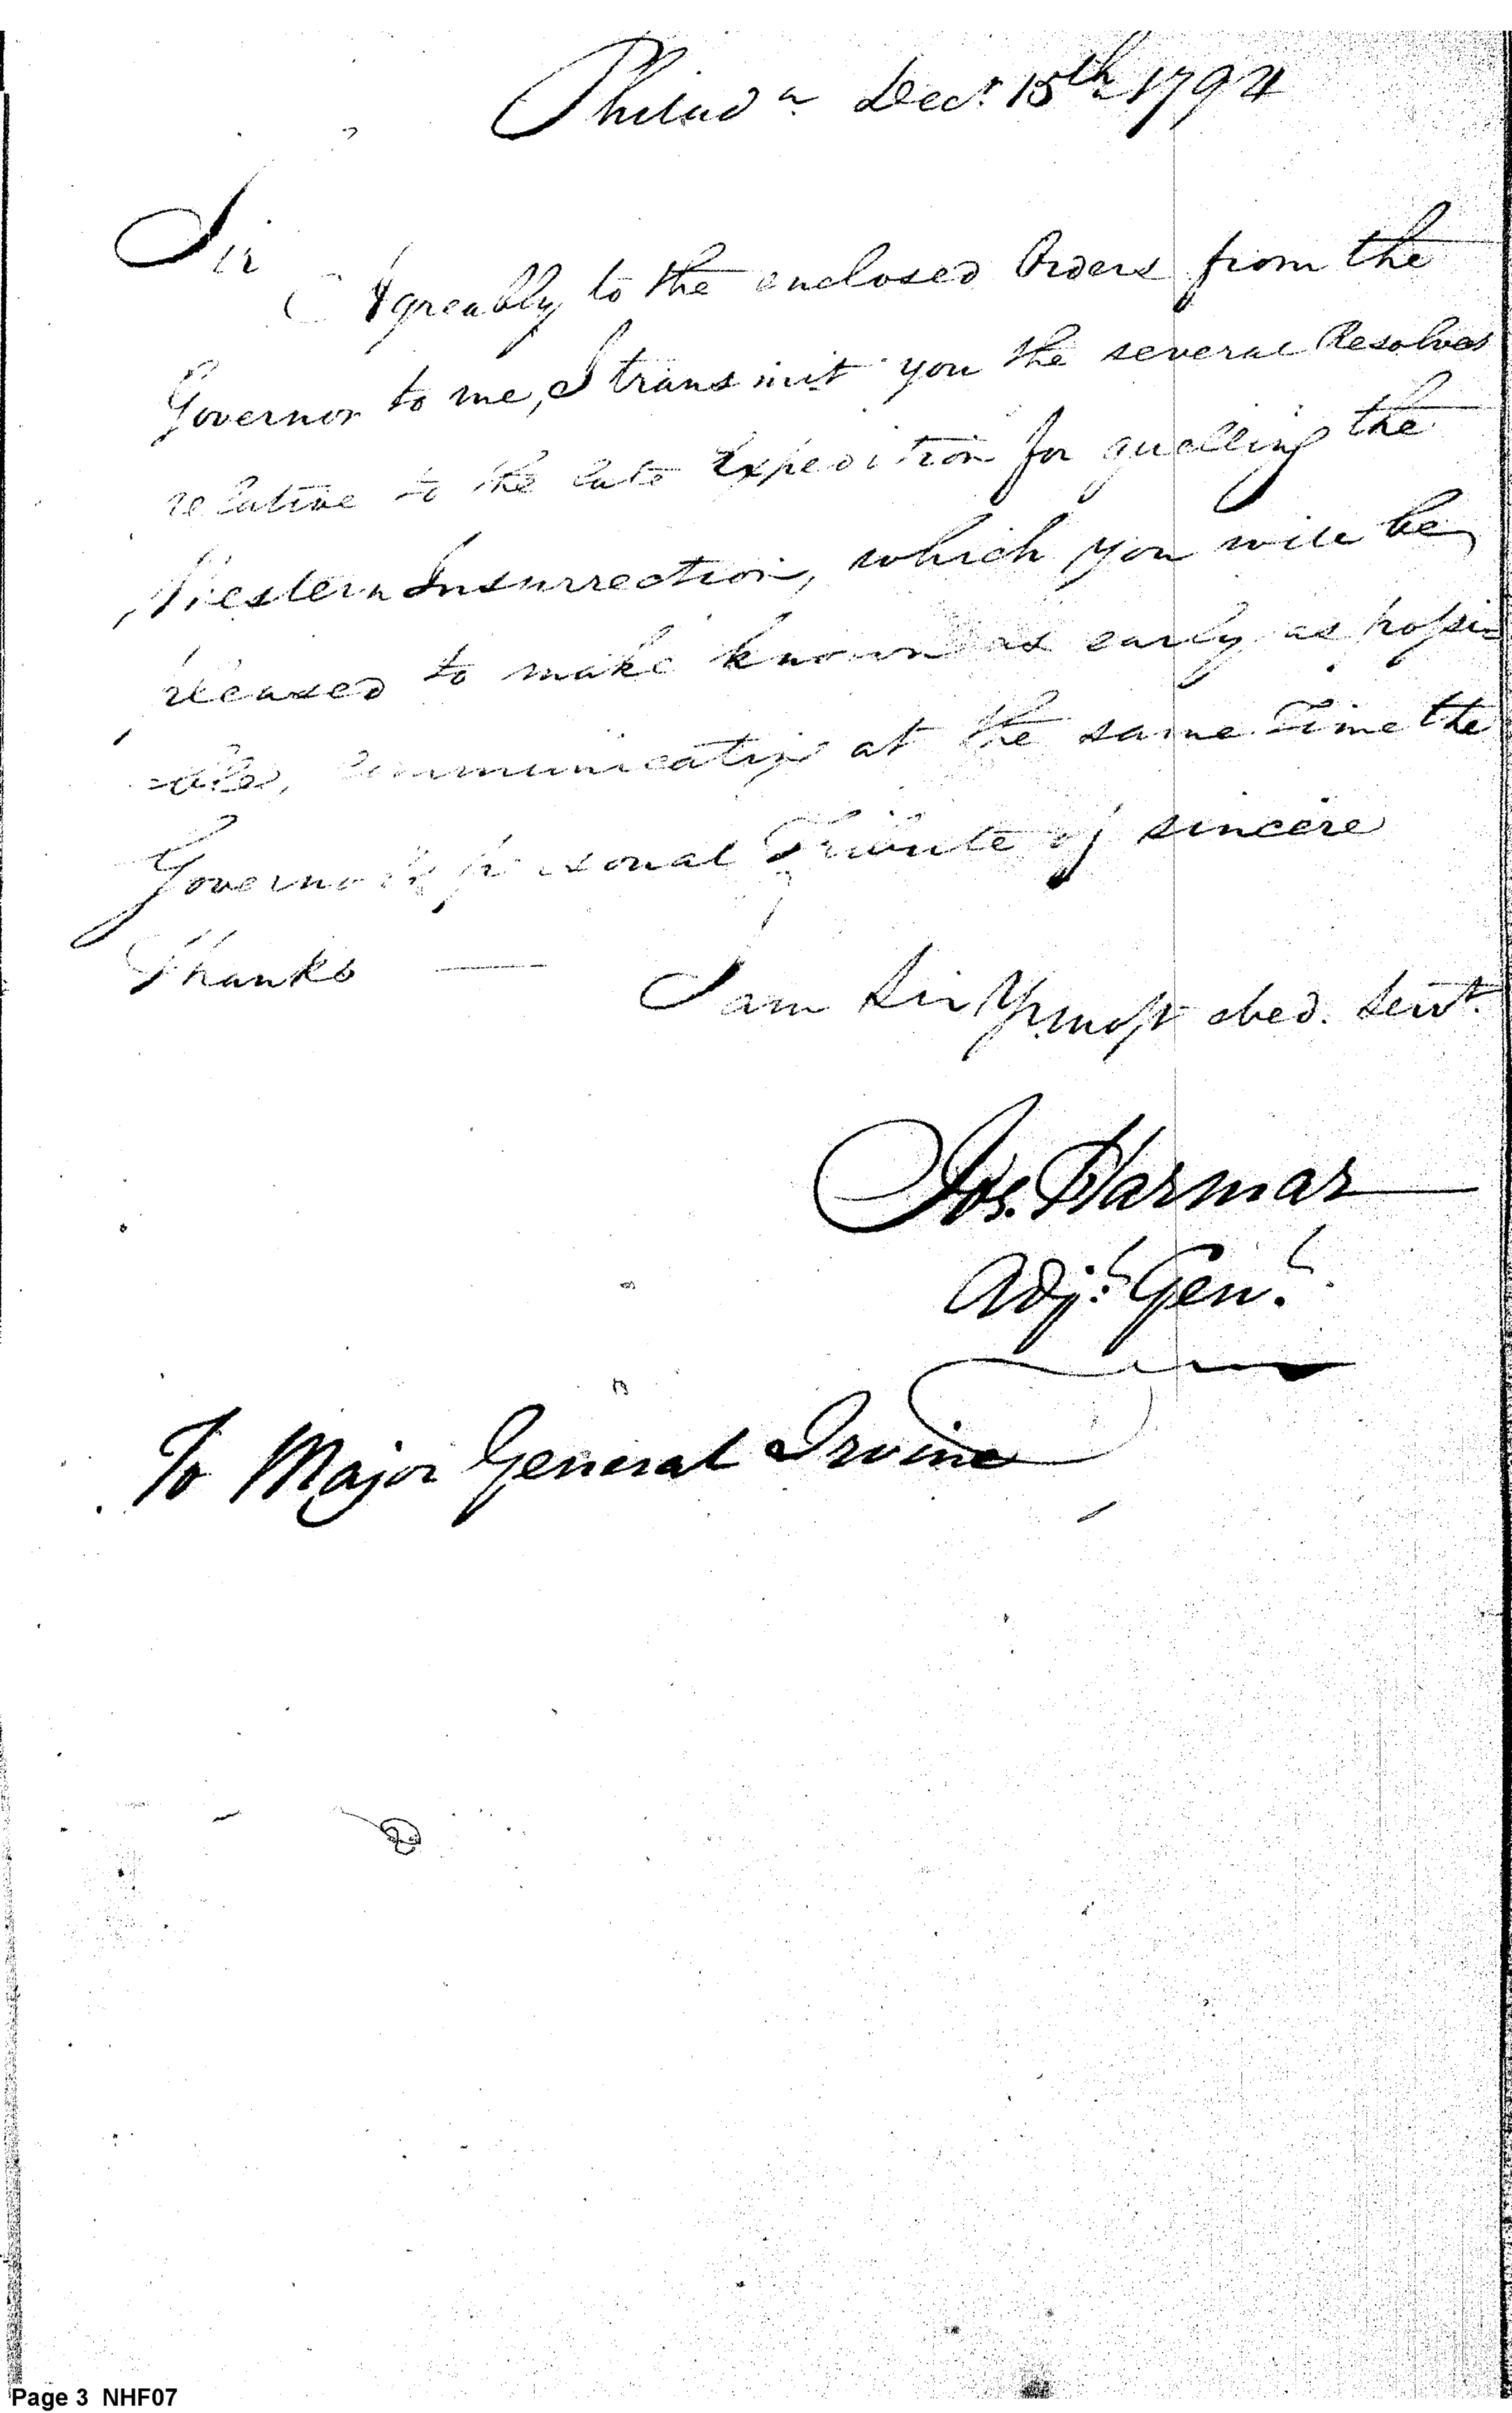 Philad.a Decr. 15th 1794
Sir
Agreably to the enclosed Orders from the
Governor to me, I transmit you the several Resolves
relative to the late Expedition for quelling the
Western Insurrection, which you will be
pleased to make known as early as possi=
=ble, communicating at the same Time the
Governor's personal Tribute of sincere
Thanks —
I am Sir Yr. most obed. Servt.
Jos. Harmar
Adjt. Genl.
To Major General Irvine
Page 3 NHF07